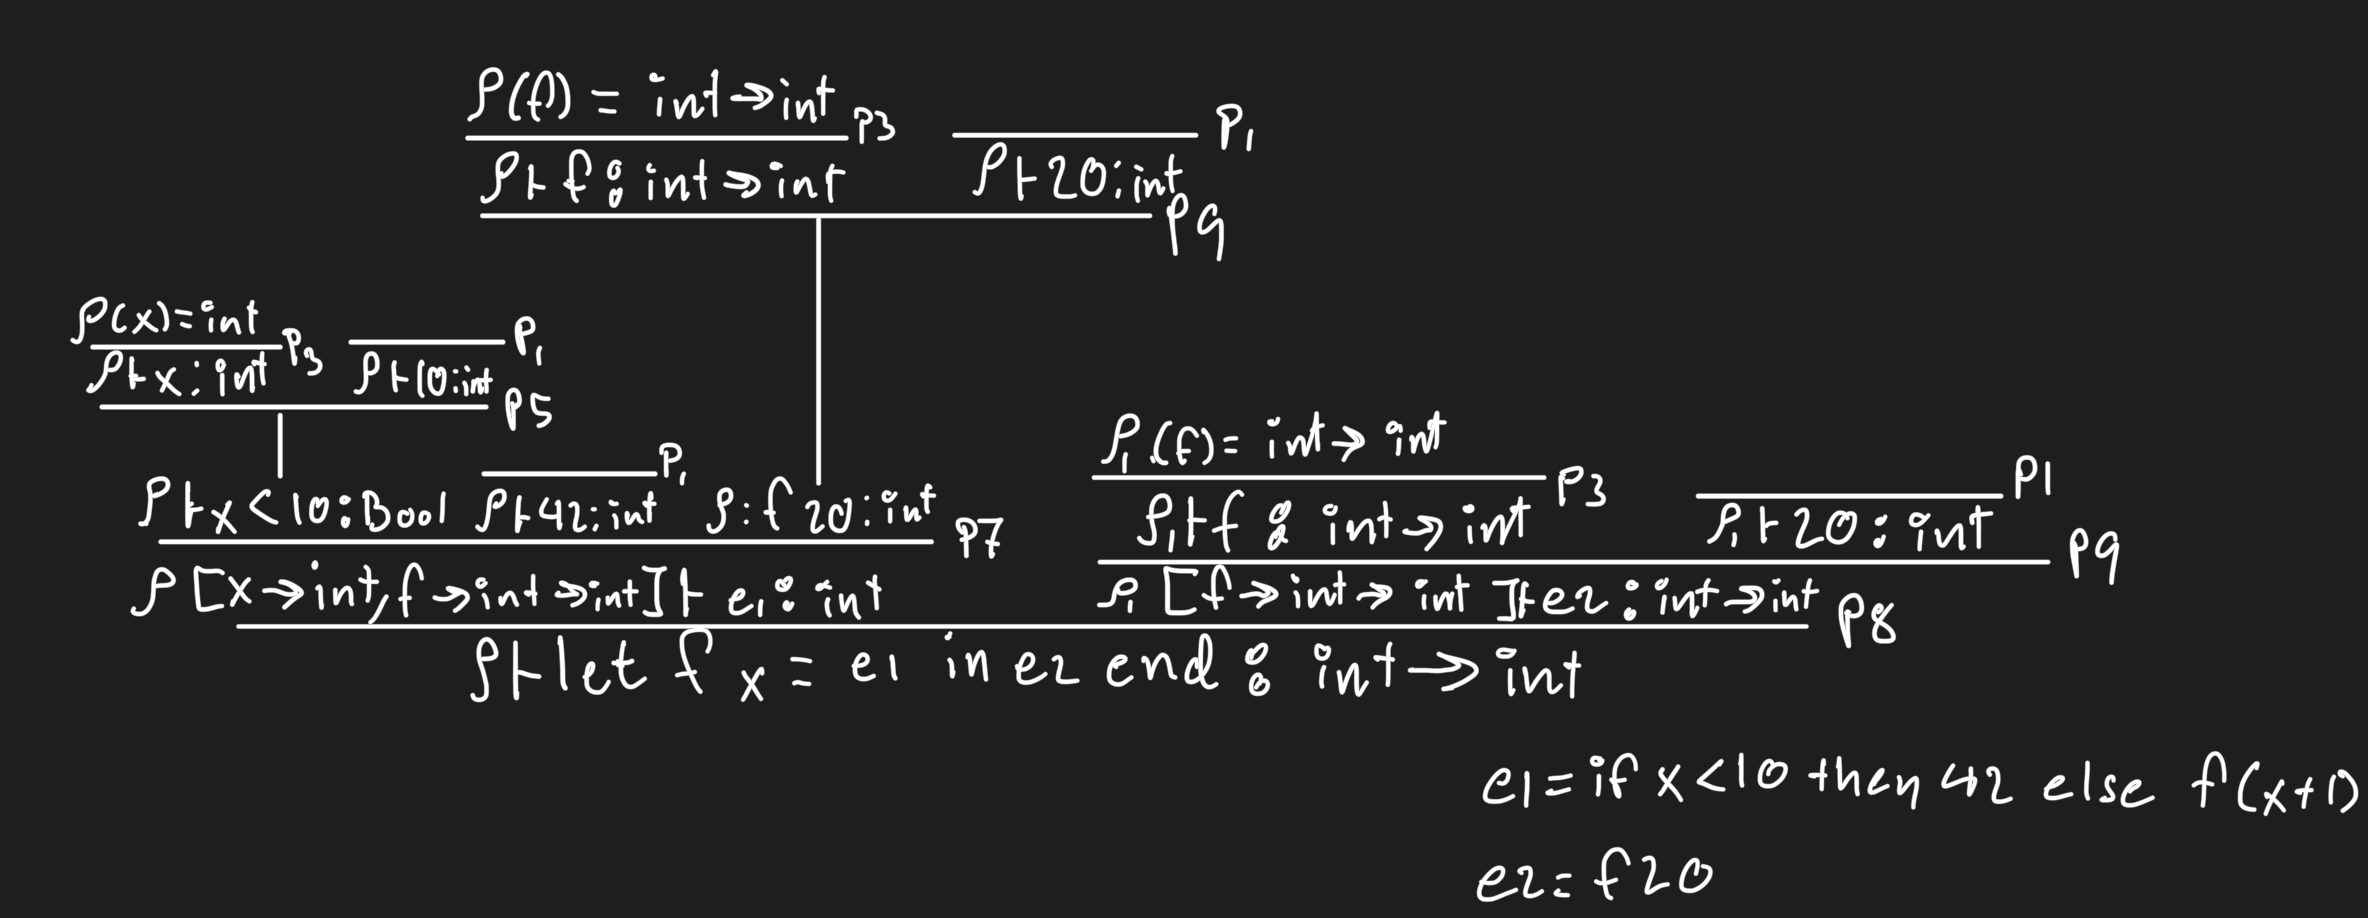 ρ(f) = int → int p3
p1
ρ ⊢ f : int → int
ρ ⊢ 20 : int
p9
ρ(x) = int p3
p1
ρ ⊢ x : int
ρ ⊢ 10 : int
p5
p1
ρ ⊢ x < 10 : Bool ρ ⊢ 42 : int ρ : f 20 : int
p7
ρ1(f) = int → int
p3
p1
ρ1 ⊢ f : int → int
ρ1 ⊢ 20 : int
p9
ρ [x → int, f → int → int] ⊢ e1 : int
ρ1 [f → int → int] ⊢ e2 : int → int
p8
ρ ⊢ let f x = e1 in e2 end : int → int
e1 = if x < 10 then 42 else f(x+1)
e2 = f 20